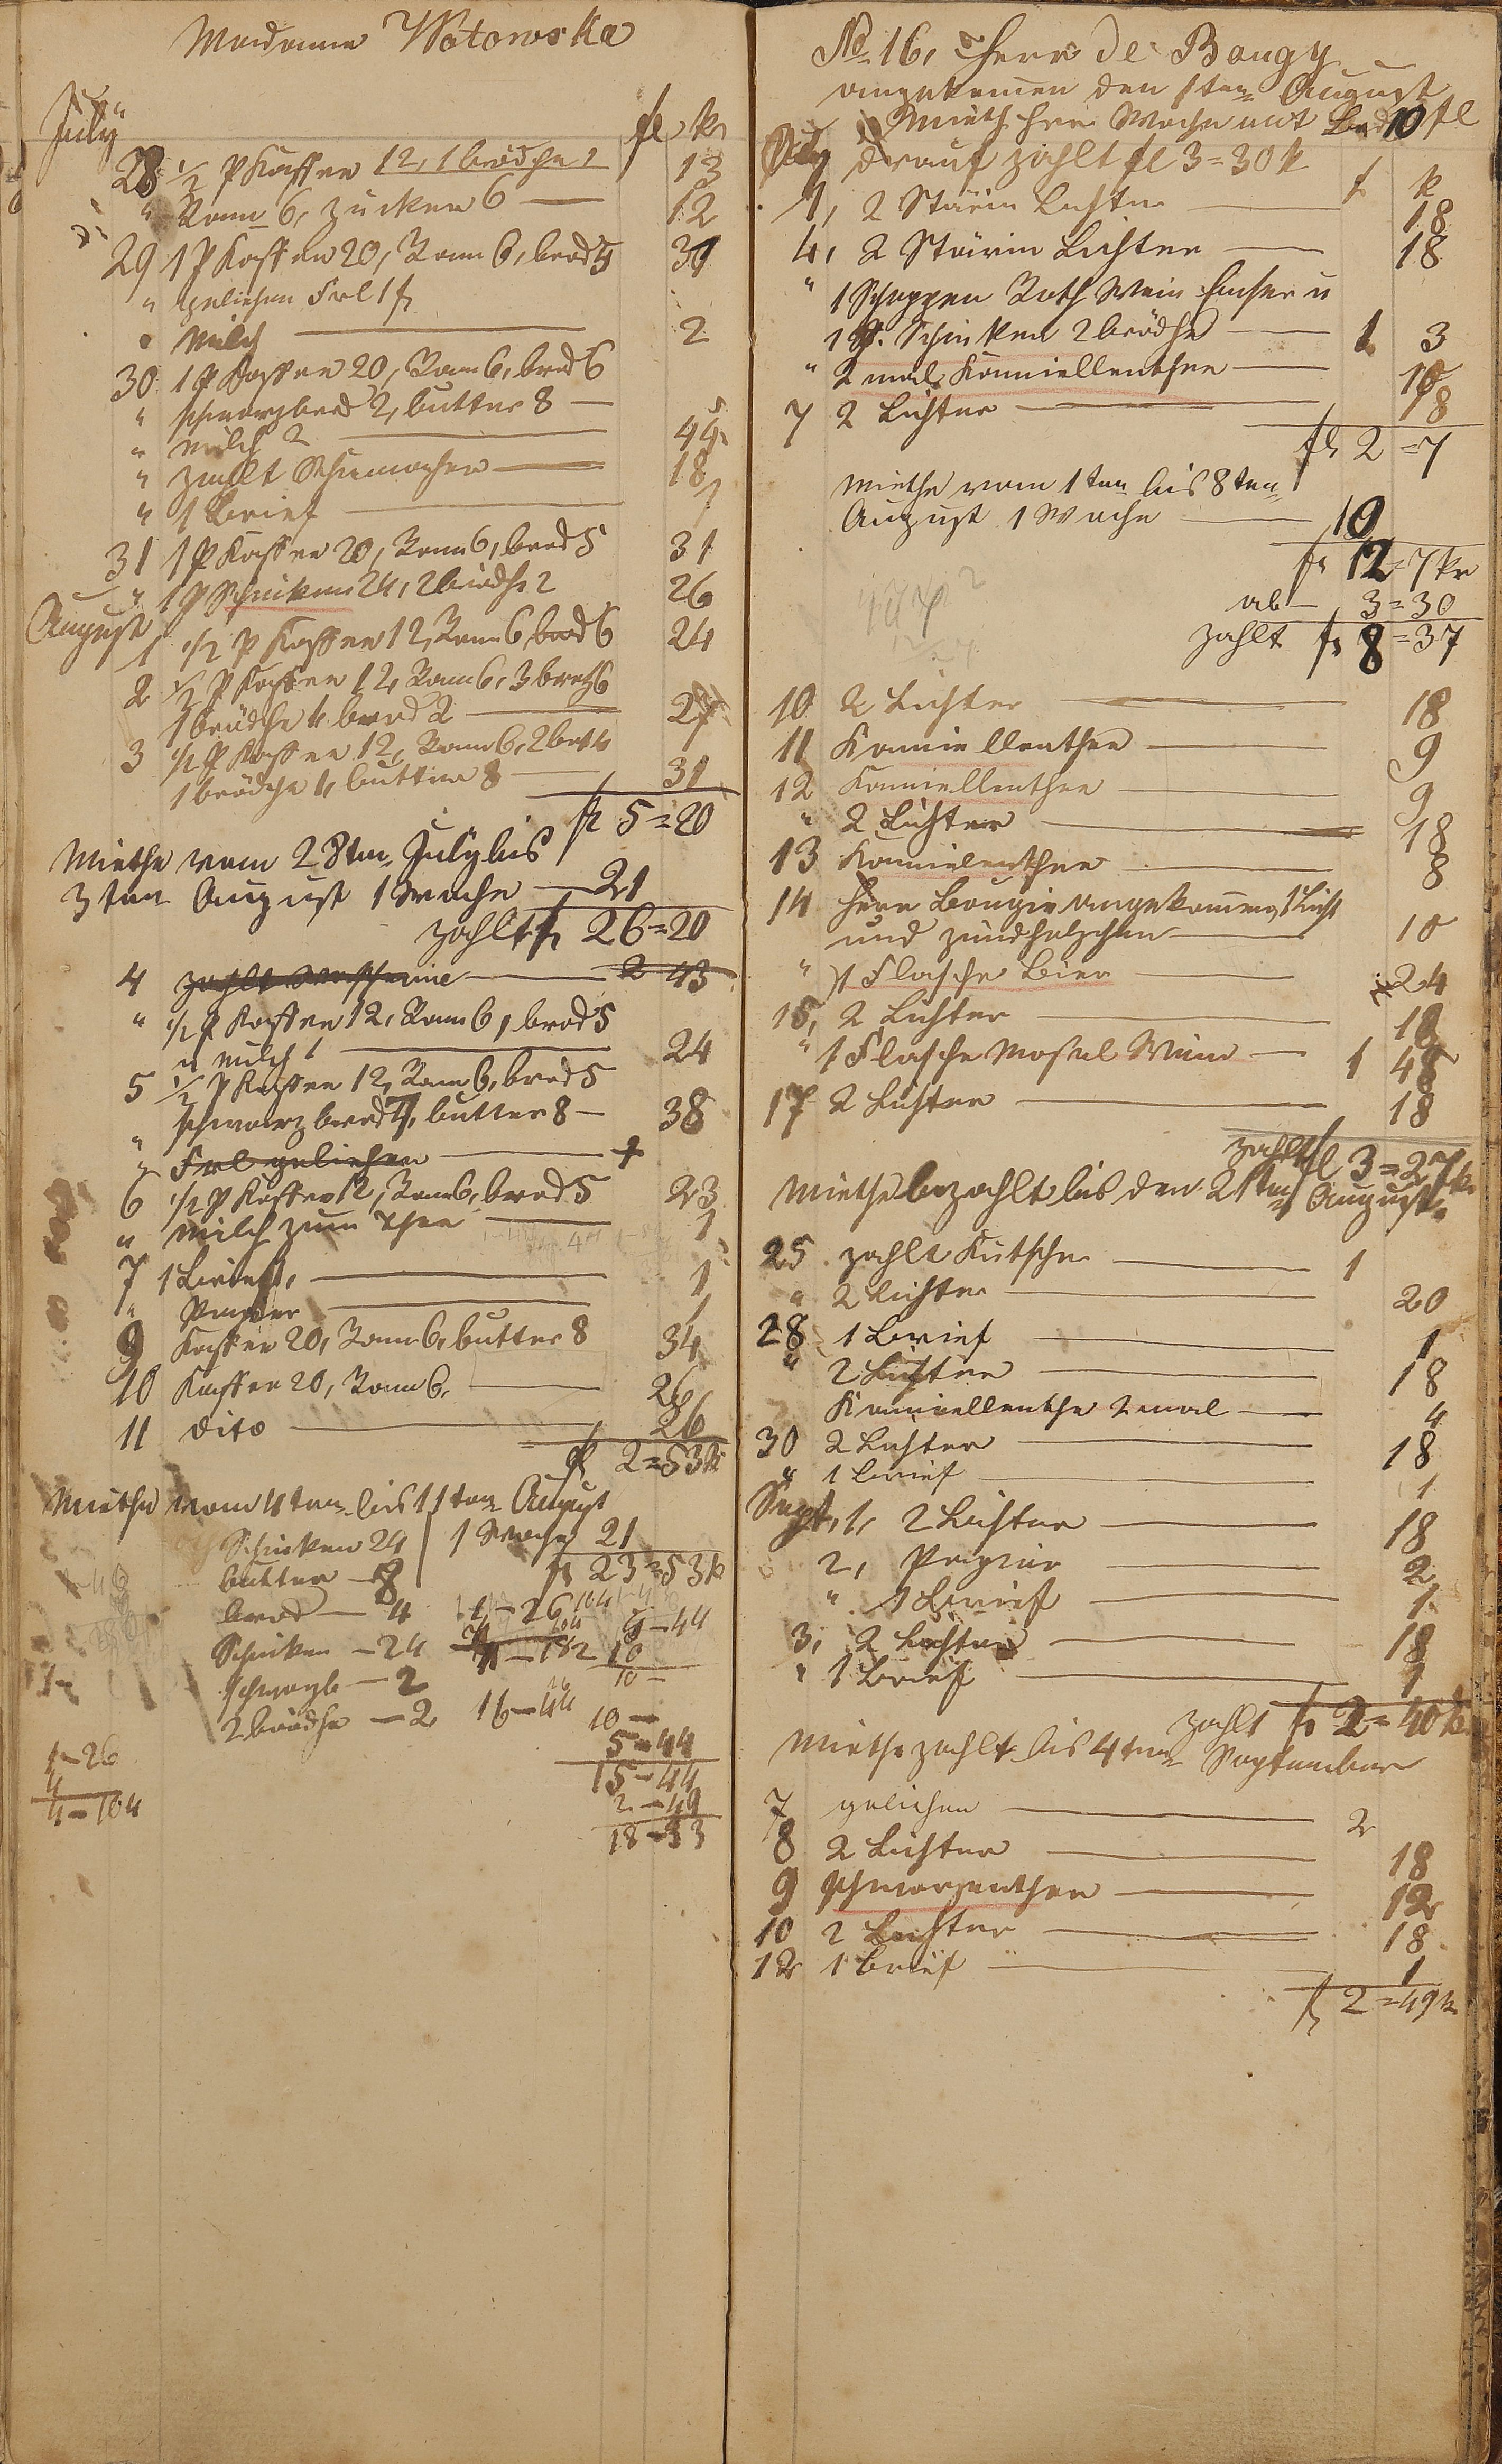 Madamme Wotowska
July
fl kr
28 1/2 P Kaffee 12, 1 brödche 1 13
" Ram 6, Zucker 6 — 12
29 1 P Kaffee 20, Ram 6, brod 5 31
" geliehen Frl 1 fl
" Milch — 2
30 1 P Kaffee 20, Ram 6, brod 6
" schwarzbrod 2, butter 8 —
" milch 2 — 44
" zahlt Schumacher — 18
" 1 Brief — 1
31 1 P Kaffee 20, Ram 6, brod 5 31
" 1 P Schinken 24, 2 brödche 2 26
August
1 1/2 P Kaffee 12, Ram 6, brod 6 24
2 1/2 P Kaffee 12, Ram 6, 3 bretz 6
1 brödche 1, brod 2 — 27
3 1/2 P Kaffee 12, Ram 6, 2 bretz 4
1 brödche 1, butter 8 — 31
fl 5=20
Miethe vom 28ten July bis
3ten August 1 Woche — 21
zahlt fl 26=20
4 zahlt Wascherine — 2 43
" 1/2 P Kaffee 12, Ram 6, brod 5
u milch 1 — 24
5 1/2 P Kaffee 12, Ram 6, brod 5
" schwarzbrod 7, butter 8 — 38
" Frl geliehen — 1
6 1/2 P Kaffee 12, Ram 6, brod 5 23
" Milch zum Thee — 1
7 1 Brief, — 1
" Papier — 1
9 Kaffee 20, Ram 6, butter 8 34
10 Kaffee 20, Ram 6, — 26
11 dito — 26
fl 2=53 k
Miethe vom 4ten bis 11ten August
Schinken 24 1 Woche 21
butter — 8 fl 23=53 k
brod — 4 1-26
Schinken — 24 5-44
schwarzb — 2 10 —
2 brödche — 2 16-44 10 —
1-26 5-44
4 15-44
4-104 2-49
18-33
No 16, Herr De Bougy
angekommen den 1ten August
Mieth frei Woche mit Bed 10 fl
Aug drauf zahlt fl 3=30 k
f k
1, 2 Stärin Lichter — 18
4, 2 Stärin Lichter — 18
" 1 Schoppen Roth Wein u
1 P. Schinken 2 brödche — 1 3
" 2 mal Kamiellenthee — 10
7 2 Lichter — 18
fl 2=7
Miethe vom 1ten bis 8ten
August 1 Woche — 10
fl 12=7 kr
ab — 3=30
zahlt fl 8=37
10 2 Lichter — 18
11 Kamiellenthee — 9
12 Kamiellenthee — 9
" 2 Lichter — 18
13 Kamielenthee — 8
14 Herr Bougie angekommen, 1 Licht
und zündhelzchen — 10
" 1 Flasche Bier — 24
15, 2 Lichter — 18
" 1 Flasche Mosel Wein — 1 48
17 2 Lichter — 18
zahlt fl 3=27 k
Miethe bezahlt bis den 21ten August.
25 zahlt Kutscher — 1
" 2 Lichter — 20
28 1 Brief — 1
" 2 Lichter — 18
Kamiellenthe 2 mal — 4
30 2 Lichter — 18
" 1 Brief — 1
Sept, 1, 2 Lichter — 18
2, Papier — 2
" 1 Brief — 1
3, 2 Lichter — 18
" 1 Brief — 1
zahlt fl 2=40 k
Miethe zahlt bis 4ten September
7 geliehen — 2
8 2 Lichter — 18
9 schwarzenthee — 12
10 2 Lichter — 18
12 1 Brief — 1
fl 2=49 k